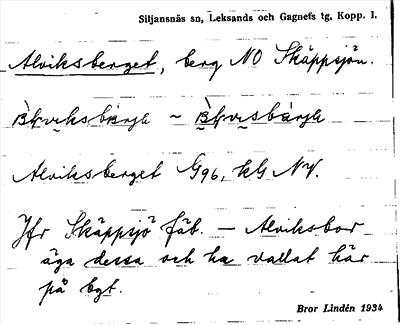 Siljansnäs sn, Leksands och Gagnefs tg, Kopp. l.
Alviksberget, berg NO Skäppsjön.
Alviksberget G96, kG NV.
Jfr Skäppsjö fäb. — Alviksbor
äga dessa och ha vallat här
på bgt.
Bror Lindén 1934